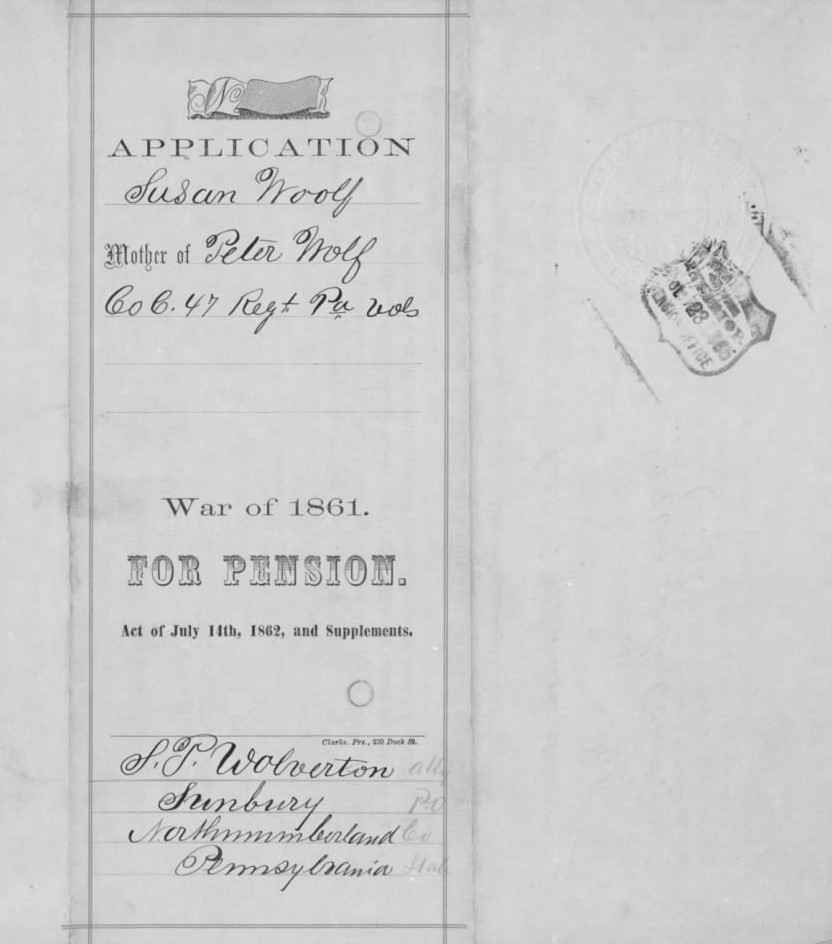 N
APPLICATION
Susan Woolf
Mother of Peter Wolf
Co C. 47 Regt Pa vols
War of 1861.
FOR PENSION.
Act of July 14th, 1862, and Supplements.
Clarke, Prs., 230 Dock St.
S. P. Wolverton atty
Sunbury P.O
Northummberland Co
Pennsylvania
28
OFFICE